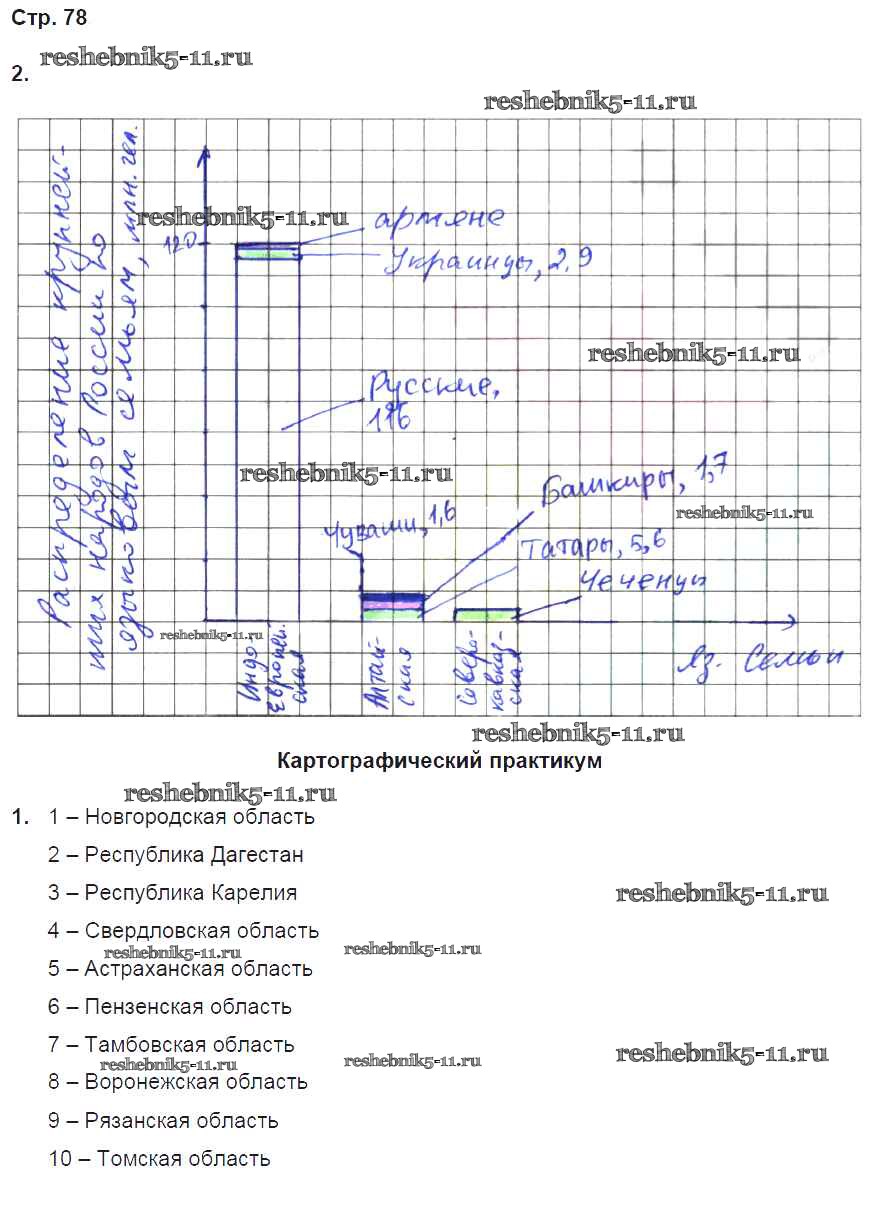 Стр. 78
reshebnik5-11.ru
2.
reshebnik5-11.ru
Распределение крупней-
ших народов России по
языковым семьям, млн. чел.
reshebnik5-11.ru
120
армяне
Украинцы, 2,9
reshebnik5-11.ru
Русские,
116
reshebnik5-11.ru
Башкиры, 1,7
Чуваши, 1,6
reshebnik5-11.ru
Татары, 5,6
Чеченцы
reshebnik5-11.ru
Индо
европей.
ская
Алтай-
ская
Северо-
кавказ-
ская
Яз. Семьи
reshebnik5-11.ru
Картографический практикум
reshebnik5-11.ru
1. 1 – Новгородская область
2 – Республика Дагестан
3 – Республика Карелия
reshebnik5-11.ru
4 – Свердловская область
reshebnik5-11.ru
reshebnik5-11.ru
5 – Астраханская область
6 – Пензенская область
7 – Тамбовская область
reshebnik5-11.ru
reshebnik5-11.ru
reshebnik5-11.ru
8 – Воронежская область
9 – Рязанская область
10 – Томская область